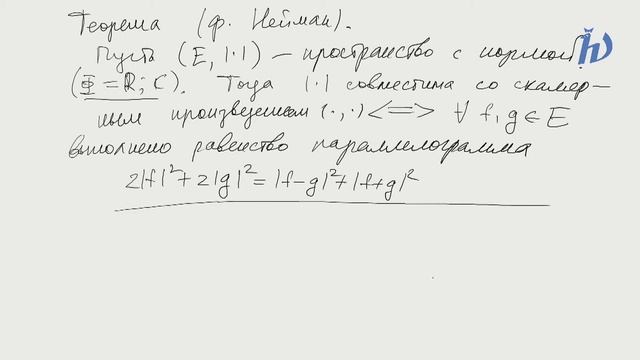 Теорема (ф. Нейман).
Пусть (E, |·|) – пространство с нормой
(Φ = ℝ; ℂ). Тогда |·| совместима со скаляр-
ным произведением (·,·) <=> ∀ f, g ∈ E
выполнено равенство параллелограмма
2|f|² + 2|g|² = |f-g|² + |f+g|²